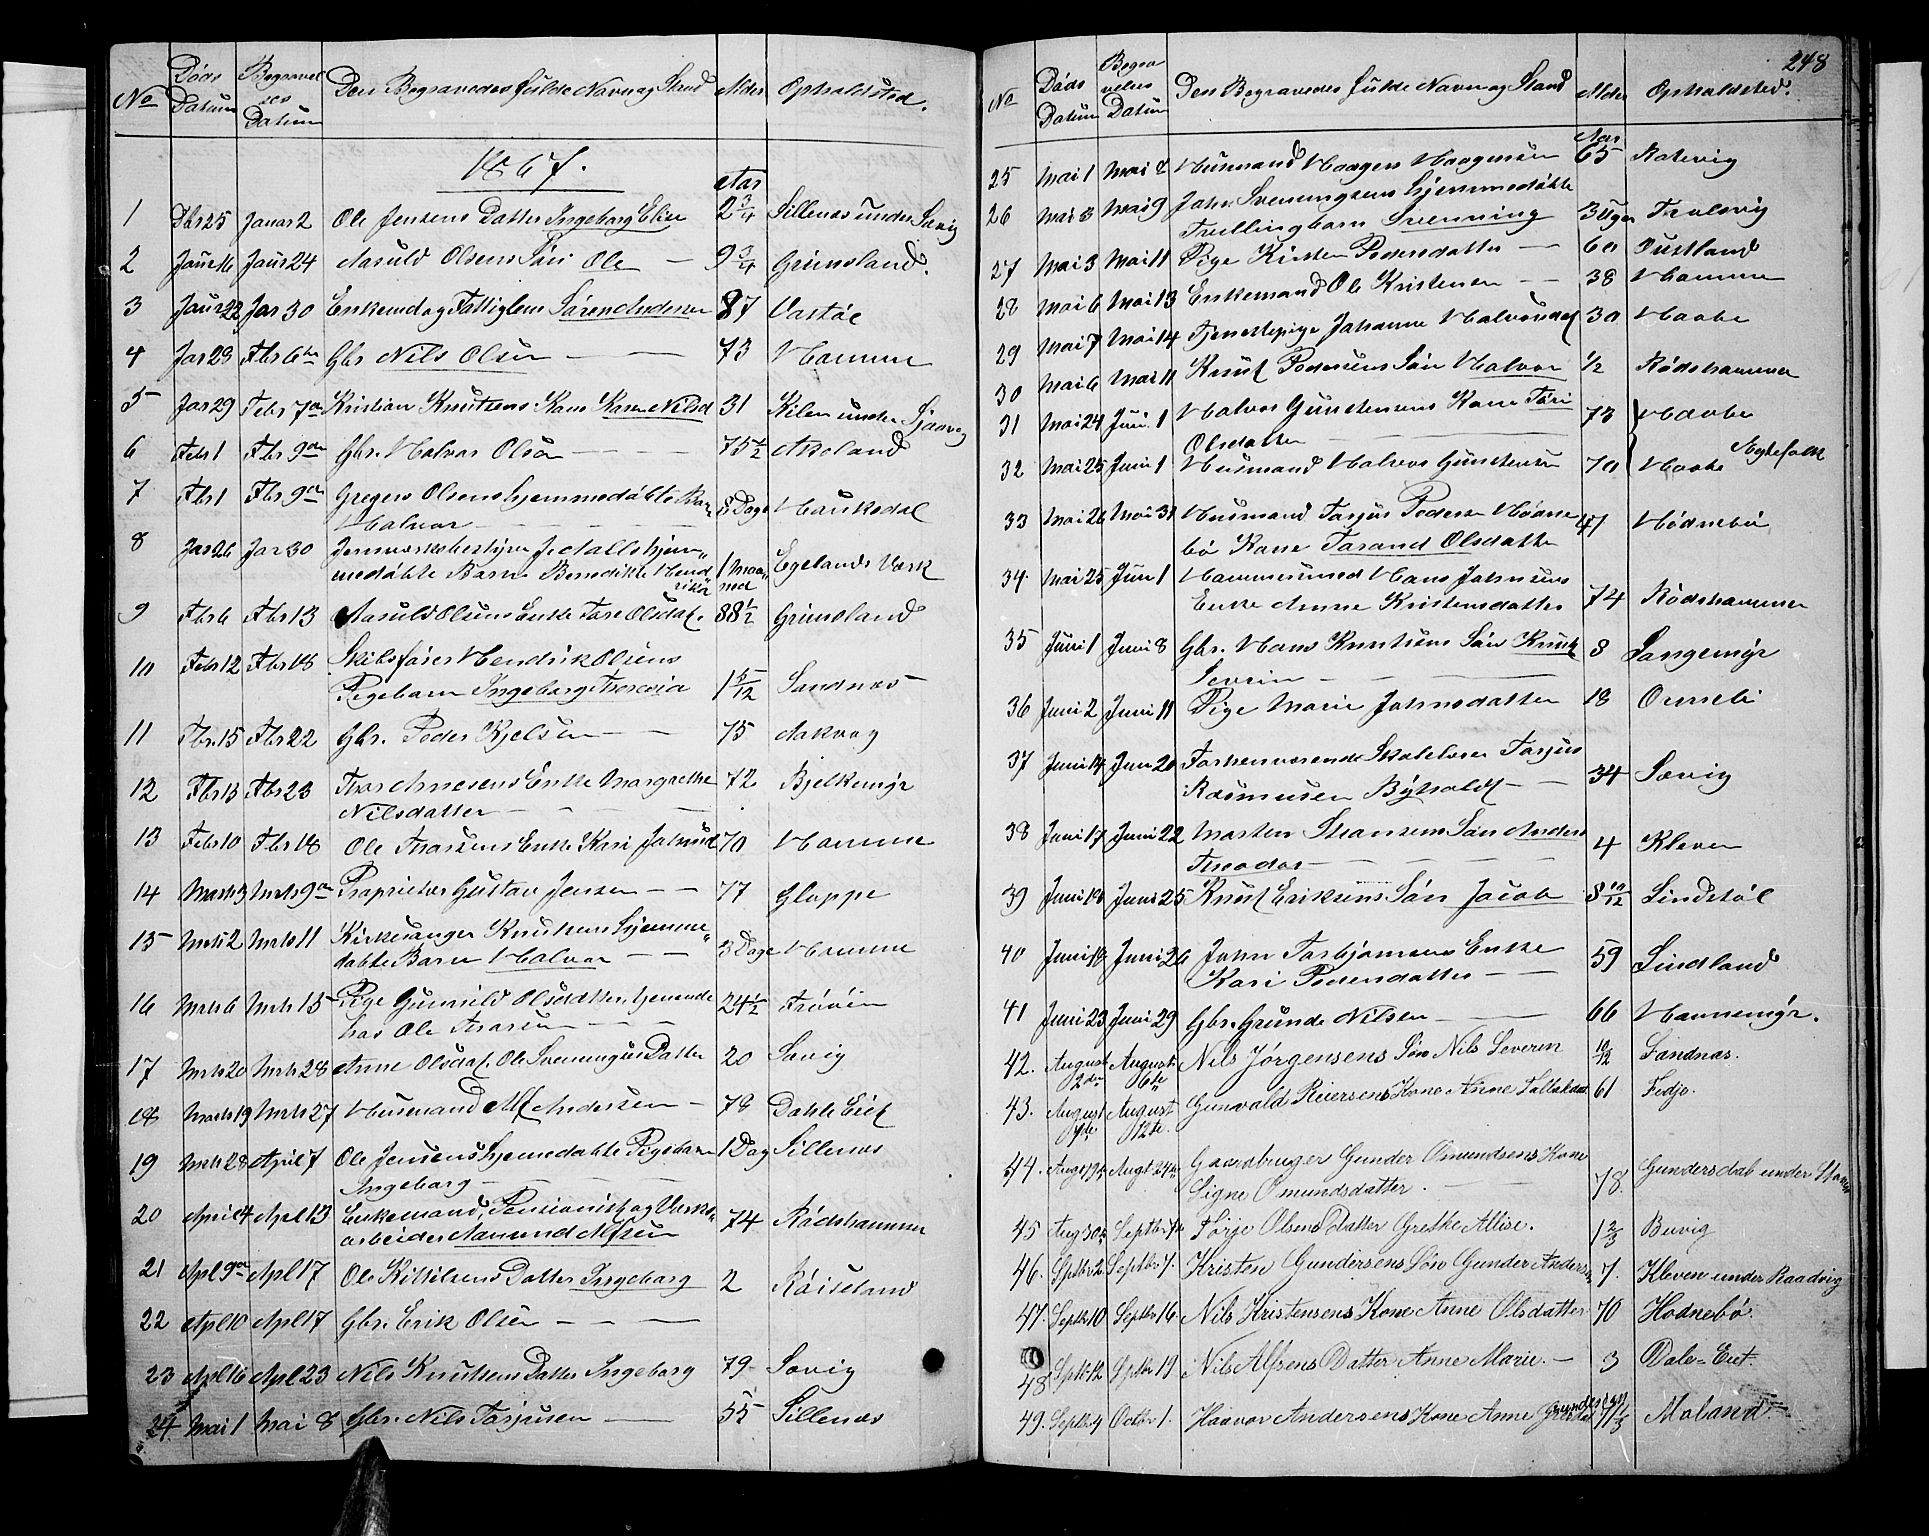 No Døds Datum Begravelses Datum Den Begravedes fulde Navn og Stand Alder Opholdsted.
1867.
Aar
1 Dbr 25 Januar 2 Ole Jensens Datter Ingeborg Elise 2 3/4 Sillenæs under Savig
2 Janr 16 Janr 24 Aasuld Olsens Søn Ole — 9 3/4 Grimsland.
3 Janr 22 Jar 30 Enkemd og Fattiglem Søren Andersen 87 Vastøl
4 Jar 29 Fbr 6te Gbr Nils Olsen — — 73 Hamme
5 Jar 29 Febr 7de Kristian Knutsens Kone Karen Nilsd 31 Kilen under Sjaavig
6 Febr 1 Fbr 9de Gbr. Halvor Olsen — — 75 1/2 Aasland
7 Fbr 1 Fbr 9de Gregers Olsens hjemmedøbte Barn
Halvor — — — 8 Dage Hauksdal
8 Jar 26 Jar 30 Jernværksbestyrer J. Aalls hjem-
medøbte Barn Benedikte Hendrikke 1 Maaned Egelands Værk
9 Fbr 6 Fbr 13 Aasuld Olsens Enke Tore Olsdat. 88 1/2 Grimsland
10 Febr 12 Fbr 18 Skibsfører Hendrik Olsens
Pigebarn Ingeborg Theresia 1 5/12 Sandnæs
11 Fbr. 15 Fbr 22 Gbr. Peder Kjelsen — — 75 Aakvog
12 Fbr 13 Fbr 23 Thor Arnesens Enke Margrethe
Nilsdatter — — — 72 Bjelkemyr
13 Febr 10 Fbr 18 Ole Thorsens Enke Kari Johnsd 70 Hamme
14 Marts 3 Mrts 9de Proprietær Gustav Jensen — — 77 Gloppe
15 Mrts 2 Mrts 11 Kirkesanger Knutsens hjemme-
døbte Barn Halvor — — 3 Dage Hamme
16 Mrts 6 Mrts 15 Pige Gunnild Olsdatter, tjenende
hos Ole Thorsen — — 24 1/2 Frøvin
17 Mrts 20 Mrts 28 Anne Olsdat. Ole Svenningsens Datter 20 Savig
18 Marts 19 Mrts 27 Husmand Alf Andersen — 78 Dahle Eiet
19 Mrts 28 April 7 Ole Jensens hjemmedøbte Pigebarn
Ingeborg — — — 1 Dag Sillenæs
20 April 4 Apl 13 Enkemand, Pensionist og Værks-
arbeider Aamund Alfsen 74 Rødshammer
21 Apl 9de Apl 17 Ole Kittilsens Datter Ingeborg 2 Røiseland
22 Apl 10 Apl 17 Gbr. Erik Olsen — — —
23 Apl 16 Apl 23 Nils Knutsens Datter Ingeborg 79 Savig
24 Mai 1 Mai 8 Gbr. Nils Tarjusen — 55 Sillenæs
248
No Døds Datum Begravelses Datum Den Begravedes fulde Navn og Stand Alder Opholdsted.
Aar
25 Mai 1 Mai 8 Husmand Haagen Haagensen 65 Ratevig
26 Mai 8 Mai 9 John Svenningsens hjemmedøbte
Tvillingbarn Svenning 3 Uger Trolsvig
27 Mai 3 Mai 11 Pige Kirsten Pedersdatter — 60 Østland
28 Mai 6 Mai 13 Enkemand Ole Kristensen — — 38 Hamme
29 Mai 7 Mai 14 Tjenestepige Johanne Halvorsdat 30 Haabe
30 Mai 6 Mai 11 Knut Pedersens Søn Halvor 1/2 Rødshammer
31 Mai 24 Juni 1 Halvor Gundersens Kone Tori
Olsdatter — — — 73 Haabe
32 Mai 25 Juni 1 Husmand Halvor Gundersen 70 Haabe Ægtefolk
33 Mai 26 Mai 31 Husmand Tarjus Pedersen Hødne-
bø Kone Tarand Olsdatter 47 Hødnebø
34. Mai 25 Juni 1 Hammersmed Hans Johnsens
Enke Anne Kristensdatter 74 Rødshammer
35 Juni 1 Juni 8 Gbr. Hans Knutsens Søn Knut
Severin — — — 8 Langemyr
36 Juni 2 Juni 11 Pige Marie Johnsdatter 18 Ormeli
37 Juni 14 Juni 20 Forhenværende Skolelærer Tarjus
Rasmusen Byholdt — 34 Savig
38 Juni 17 Juni 22 Morten Hansens Søn Anders
Theodor — — — — 4 Kleven
39 Juni 18 Juni 25 Knut Eriksens Søn Jacob 8 10/12 Lindstøl
40 Juni 18 Juni 26 John Torbjørnsens Enke
Kari Pedersdatter — — 59 Lindland
41 Juni 23 Juni 29 Gbr. Grunde Nilsen — — 66 Hammemyr.
42. August 2den August 6te Nils Jørgensens Søn Nils Severin 10/12 Sandnæs.
43. August 7de August 12te. Gunvald Reiersens Kone Anne Tallaksdat. 61 Fedjo.
44. Augst 19de Augst 24de Gaardbruger Gunder Omundsens Kone
Signe Omundsdatter. — 78. Gundersdal under
45 Aug 30te Septbr 7de Torje Olsens Datter Grethe Allise. 1 2/3 Buvig
46. Sptbr 2 Septbr 7. Kristen Gundersens Søn Gunder Andersen 7. Kleven under Raadvig
47. Septbr 10 Septbr 16 Nils Kristensens Kone Anne Olsdatter 70 Hødnebø.
48 Sptbr 12 Sptbr 19 Nils Alfsens Datter Anne Marie. — 3 Dale-Eiet.
49. Septbr 4 Octbr 1. Haavor Andersens Kone Anne 71 1/3 Moland